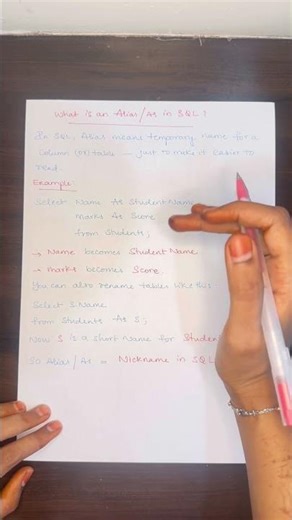 What is an Alias/As in SQL!
In SQL, Alias means temporary name for a
column (or) table — just to make it easier to
read.
Example:
Select Name As StudentName
Marks As Score
from Students;
→ Name becomes StudentName
→ Marks becomes Score.
You can also rename tables like this
Select S.Name
from Students As S;
Now S is a short Name for Studen
So Alias/As = Nickname in SQL